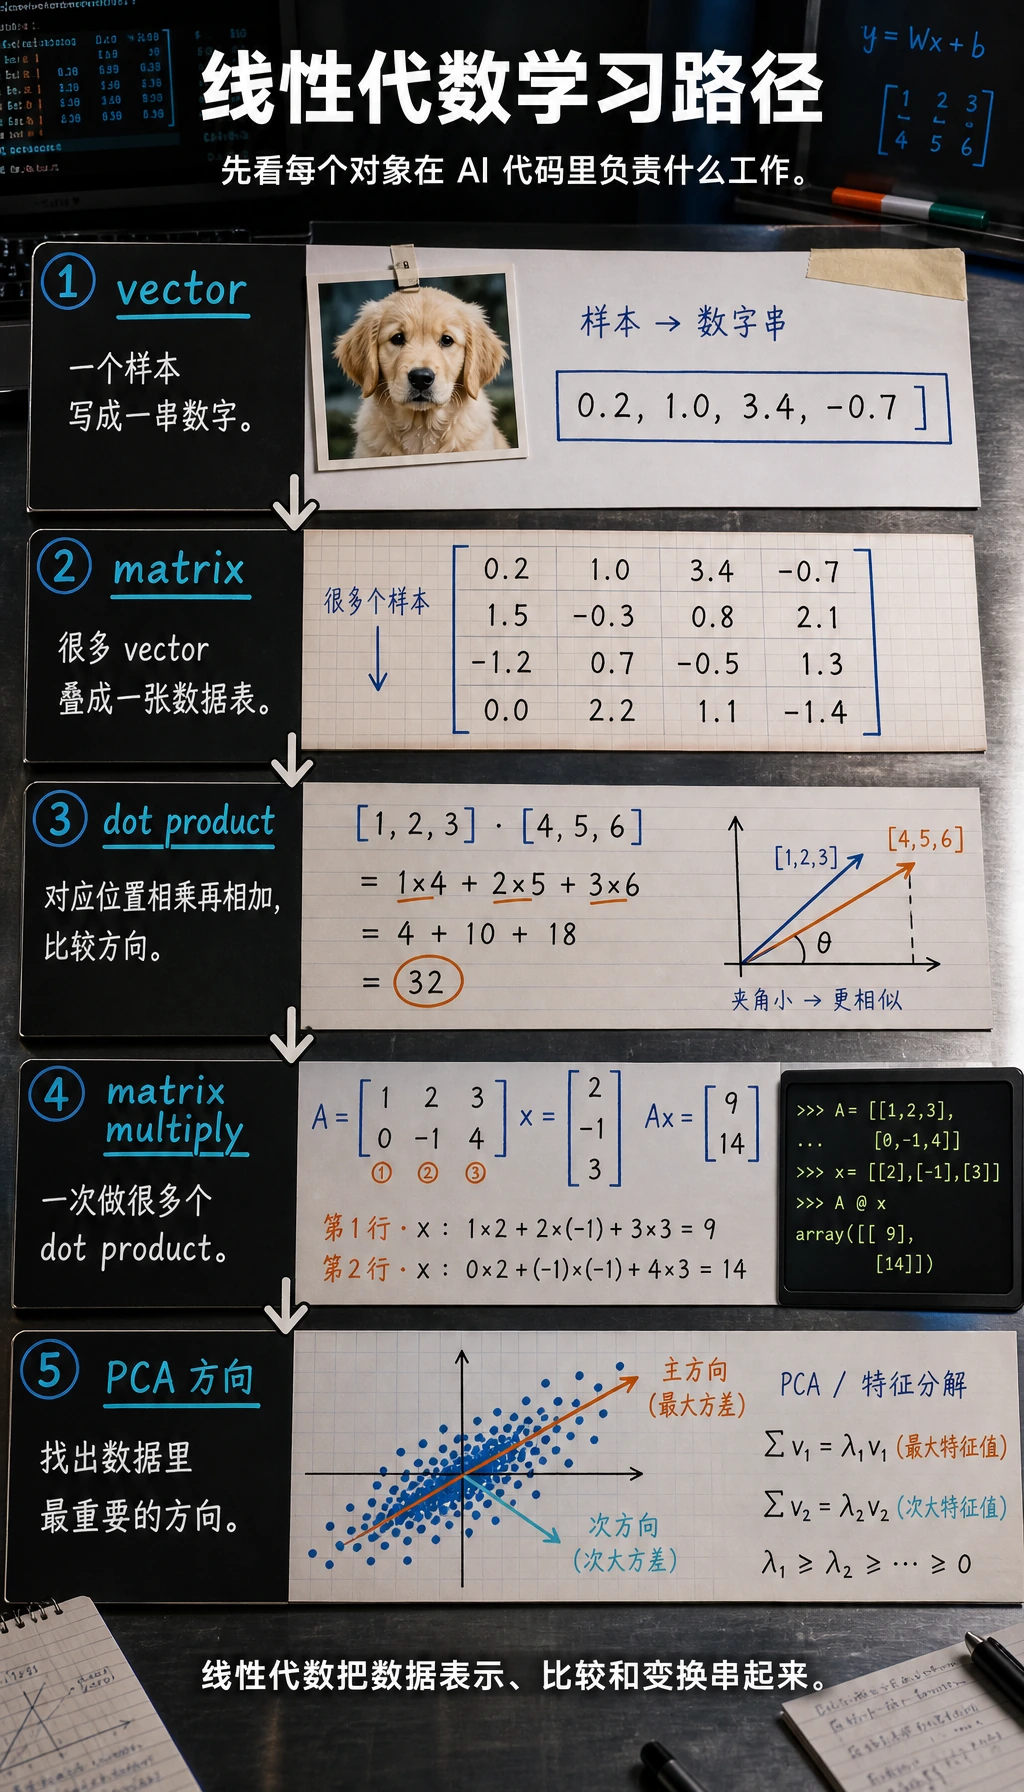 y = Wx + b
1 2 3
4 5 6
线性代数学习路径
先看每个对象在 AI 代码里负责什么工作。
1 vector
一个样本
写成一串数字。
样本 → 数字串
0.2, 1.0, 3.4, -0.7 ]
2 matrix
很多 vector
叠成一张数据表。
很多个样本
0.2 1.0 3.4 -0.7
1.5 -0.3 0.8 2.1
-1.2 0.7 -0.5 1.3
0.0 2.2 1.1 -1.4
3 dot product
对应位置相乘再相加,
比较方向。
[1, 2, 3] · [4, 5, 6]
= 1×4 + 2×5 + 3×6
= 4 + 10 + 18
= 32
[1,2,3]
[4,5,6]
θ
夹角小 → 更相似
4 matrix
multiply
一次做很多个
dot product。
A = [1 2 3
0 -1 4]
① ② ③
x = [2
-1
3]
Ax = [9
14]
第1行 · x : 1×2 + 2×(-1) + 3×3 = 9
第2行 · x : 0×2 + (-1)×(-1) + 4×3 = 14
>>> A = [[1,2,3],
... [0,-1,4]]
>>> x = [[2],[-1],[3]]
>>> A @ x
array([[ 9],
[14]])
5 PCA 方向
找出数据里
最重要的方向。
主方向
(最大方差)
次方向
(次大方差)
PCA / 特征分解
∑ v₁ = λ₁v₁ (最大特征值)
∑ v₂ = λ₂v₂ (次大特征值)
λ₁ ≥ λ₂ ≥ ⋯ ≥ 0
线性代数把数据表示、比较和变换串起来。